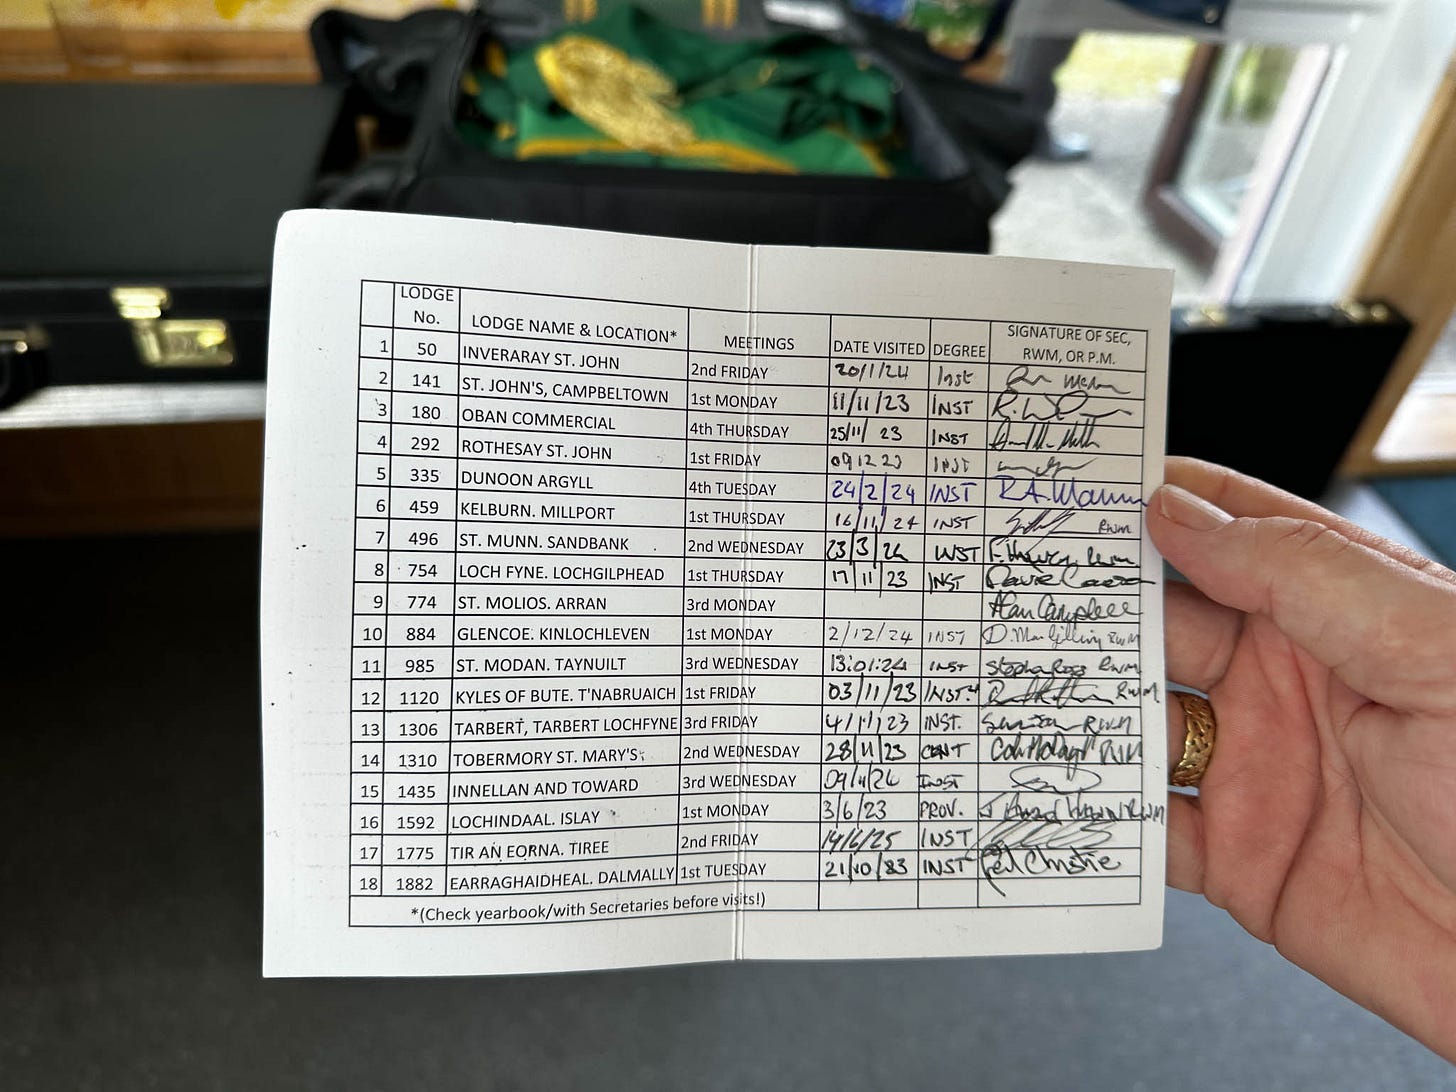 LODGE No. LODGE NAME & LOCATION* MEETINGS DATE VISITED DEGREE SIGNATURE OF SEC, RWM, OR P.M.
1 50 INVERARAY ST. JOHN 2nd FRIDAY 20/1/24 Inst
2 141 ST. JOHN'S, CAMPBELTOWN 1st MONDAY 11/11/23 INST
3 180 OBAN COMMERCIAL 4th THURSDAY 25/11/23 INST
4 292 ROTHESAY ST. JOHN 1st FRIDAY 09 12 23 INST
5 335 DUNOON ARGYLL 4th TUESDAY 24/2/24 INST R.A.
6 459 KELBURN. MILLPORT 1st THURSDAY 16/11/24 INST RWM
7 496 ST. MUNN. SANDBANK 2nd WEDNESDAY 23/3/24 INST
8 754 LOCH FYNE. LOCHGILPHEAD 1st THURSDAY 17/11/23 INST
9 774 ST. MOLIOS. ARRAN 3rd MONDAY Alan Campbell
10 884 GLENCOE. KINLOCHLEVEN 1st MONDAY 2/12/24 INST RWM
11 985 ST. MODAN. TAYNUILT 3rd WEDNESDAY 13:01:24 INST Stephen Ross RWM
12 1120 KYLES OF BUTE. T'NABRUAICH 1st FRIDAY 03/11/23 INST RWM
13 1306 TARBERT, TARBERT LOCHFYNE 3rd FRIDAY 4/11/23 INST. RWM
14 1310 TOBERMORY ST. MARY'S 2nd WEDNESDAY 28/11/23 CENT RWM
15 1435 INNELLAN AND TOWARD 3rd WEDNESDAY INST
16 1592 LOCHINDAAL. ISLAY 1st MONDAY 3/6/23 PROV. RWM
17 1775 TIR AN EORNA. TIREE 2nd FRIDAY 14/6/25 INST
18 1882 EARRAGHAIDHEAL. DALMALLY 1st TUESDAY 21/10/23 INST Christie
*(Check yearbook/with Secretaries before visits!)